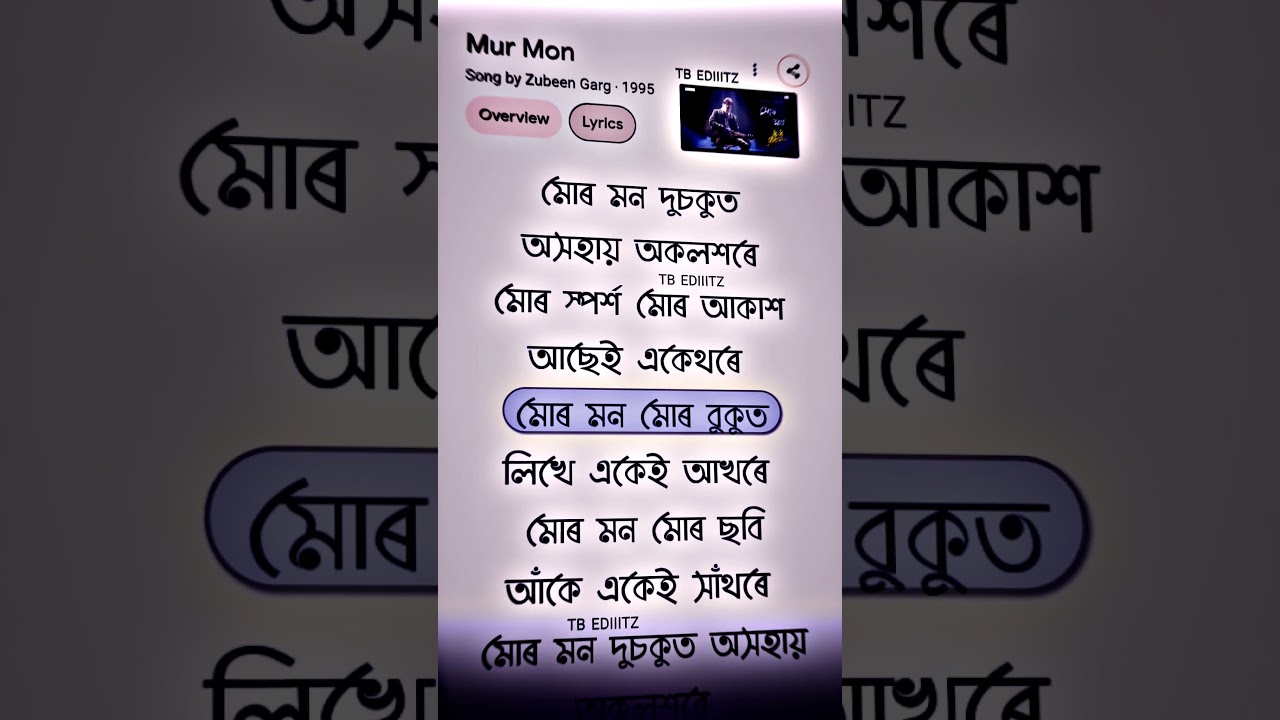 Mur Mon
Song by Zubeen Garg · 1995
TB EDIIITZ
Overview
Lyrics
মোৰ মন দুচকুত
অসহায় অকলশৰে
TB EDIIITZ
মোৰ স্পৰ্শ মোৰ আকাশ
আছেই একেথৰে
মোৰ মন মোৰ বুকুত
লিখে একেই আখৰে
মোৰ মন মোৰ ছবি
আঁকে একেই সাঁথৰে
TB EDIIITZ
মোৰ মন দুচকুত অসহায়
অকলশৰে